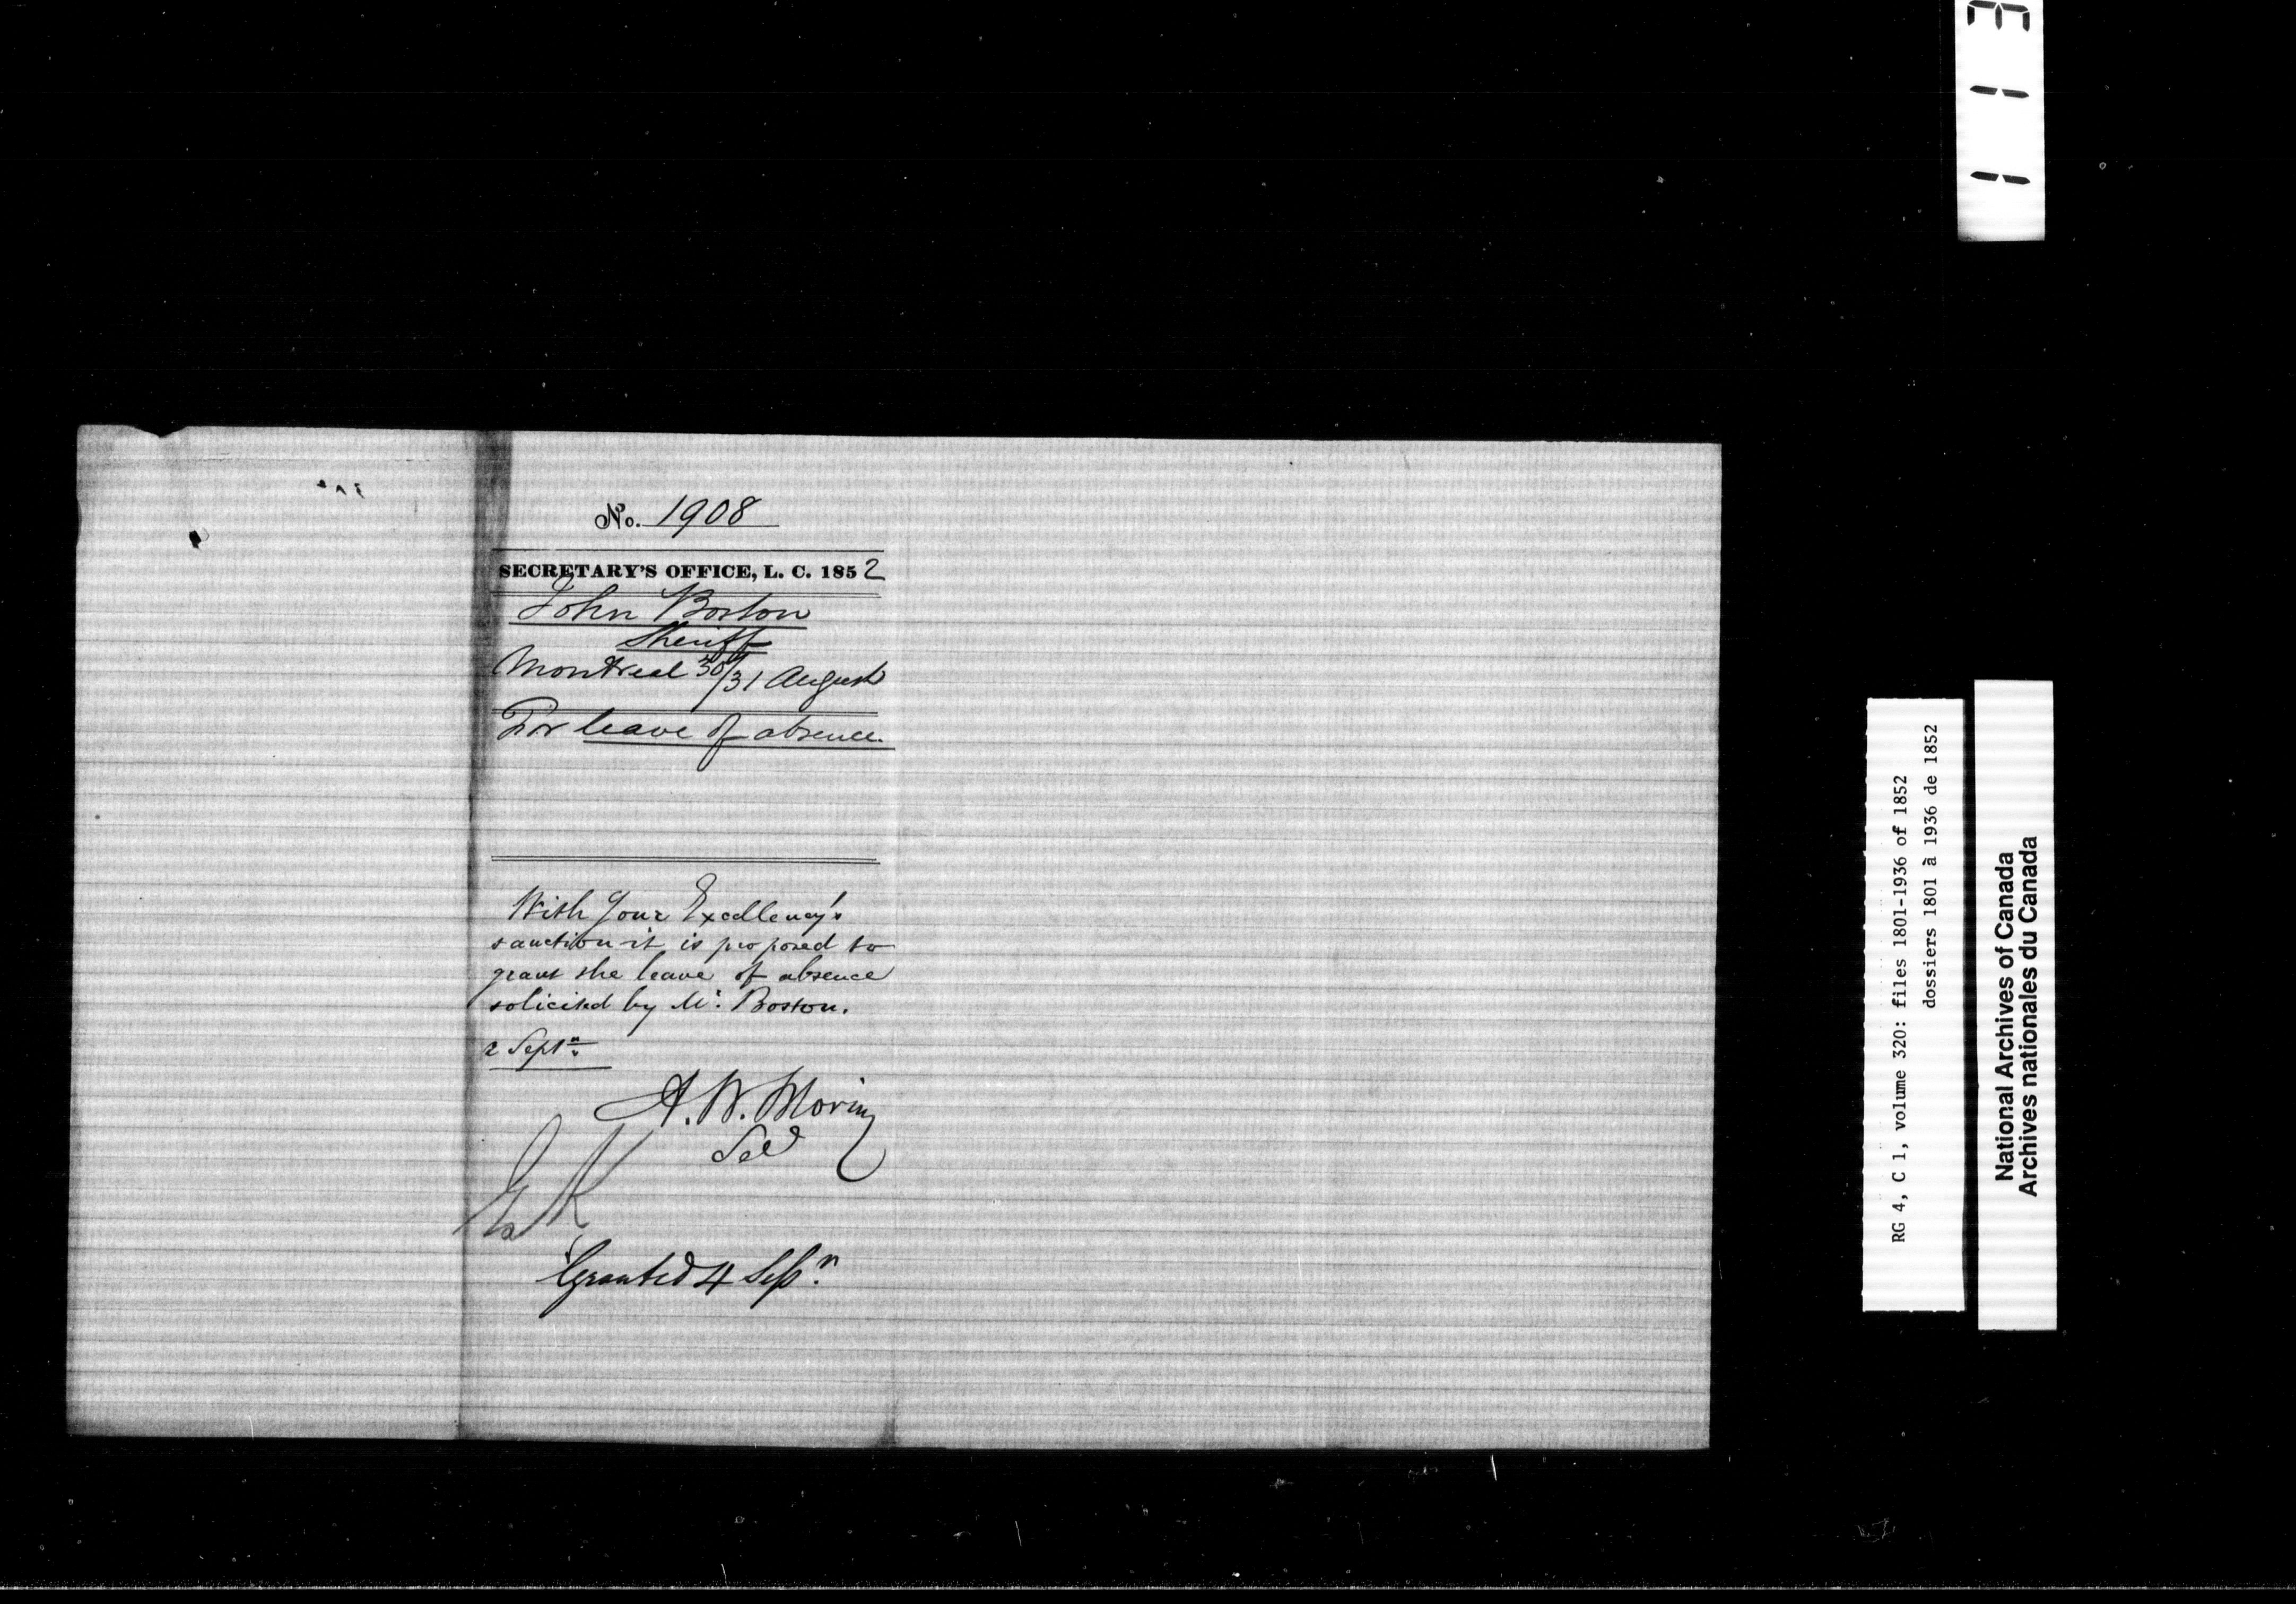 No. 1908
SECRETARY'S OFFICE, L. C. 1852
John Boston
Sheriff
Montreal 30/31 August
For leave of absence.
With Your Excellency's
sanction it is proposed to
grant the leave of absence
solicited by Mr. Boston.
2 Septr.
A. N. Morin
Sec
E K
Granted 4 Sepr.
113
RG 4, C 1, volume 320: files 1801-1936 of 1852
dossiers 1801 à 1936 de 1852
National Archives of Canada
Archives nationales du Canada